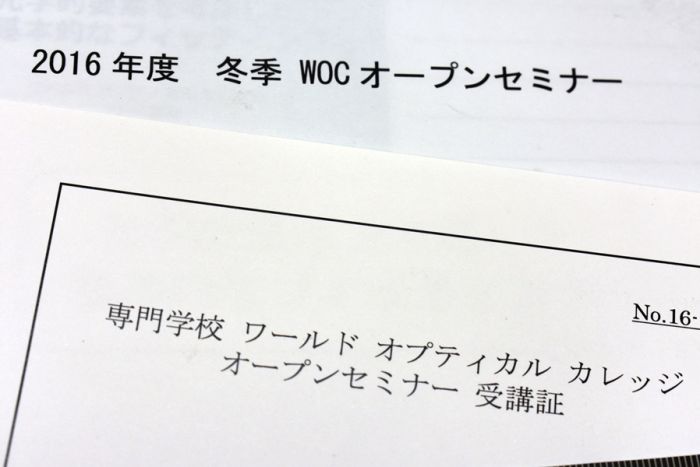 2016年度 冬季 WOCオープンセミナー
No.16-
専門学校 ワールド オプティカル カレッジ
オープンセミナー 受講証